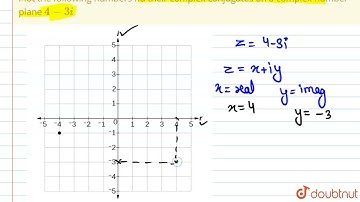 Plot the following numbers nd their complex conjugates on a complex number
plane 4 - 3i
z = 4-3i
z = x+iy
x = real y = imag
x = 4 y = -3
5
4
3
2
1
-5 -4 -3 -2 -1 0 1 2 3 4 5
-1
-2
-3
-4
-5
doubtnut